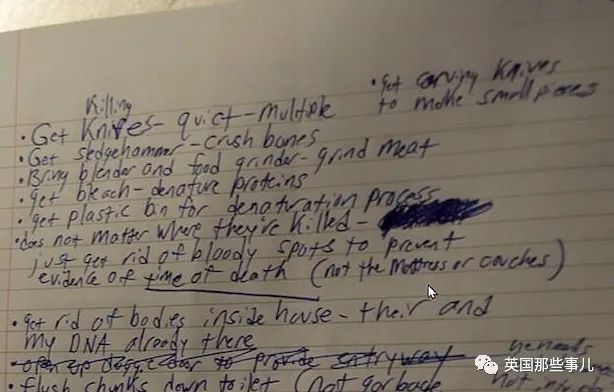 Killing
• get carving knives
to make small pieces
• Get Knives - quiet - multiple
• Get sledgehammer - crush bones
• Bring blender and food grinder - grind meat
• get bleach - denature proteins
• get plastic bin for denaturation process
• does not matter where they're killed -
just get rid of bloody spots to prevent
evidence of time of death (not the mattress or couches)
• get rid of bodies inside house - their and
my DNA already there
• open up doggie door to provide entryway
• flush chunks down toilet (not garbage
he needs
not
英国那些事儿